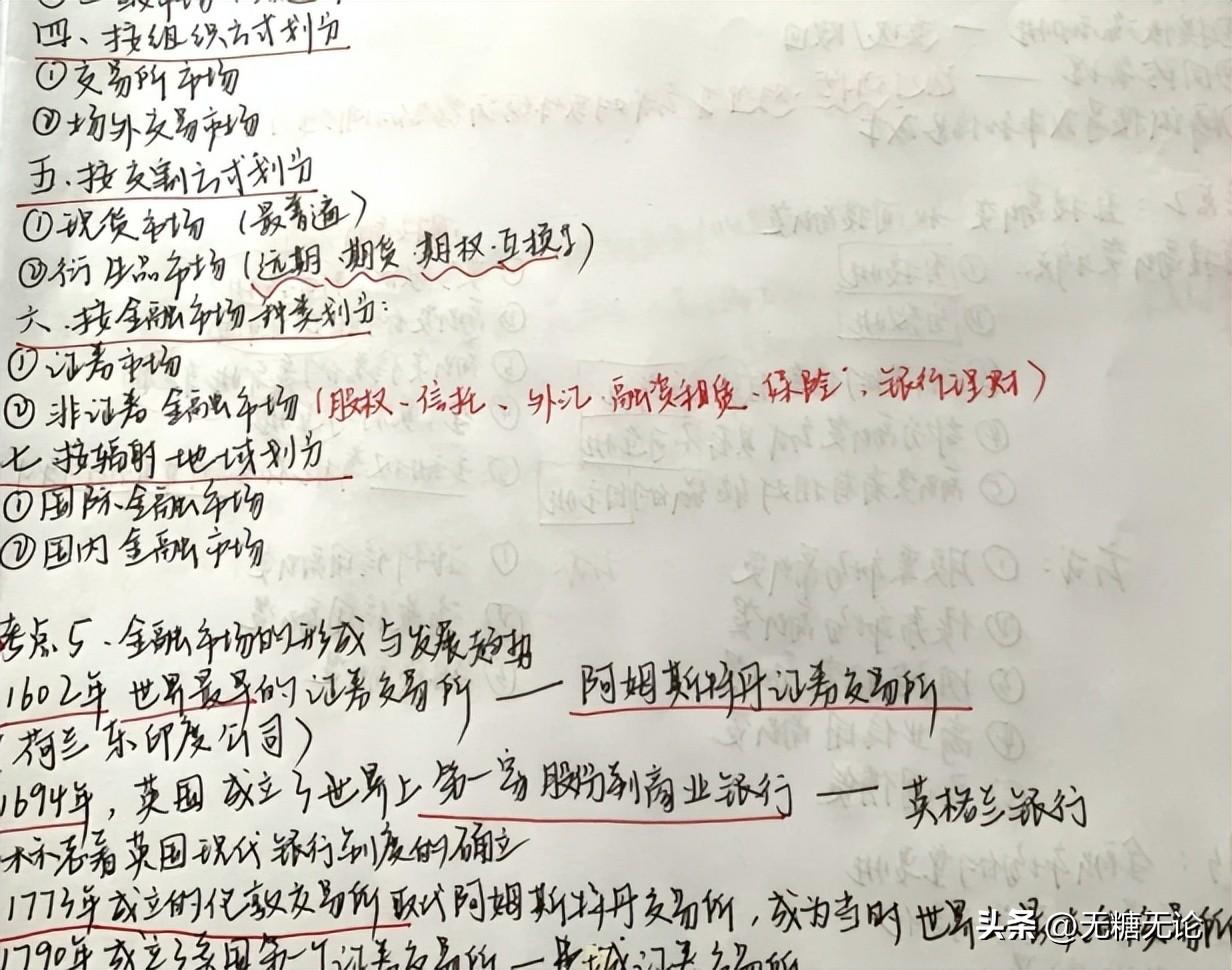 四、按组织方式划分
①交易所市场
②场外交易市场
五、按交割方式划分
①现货市场（最普遍）
②衍生品市场（远期、期货、期权、互换等）
六、按金融市场种类划分：
①证券市场
②非证券金融市场（股权、信托、外汇、融资租赁、保险、银行理财）
七、按辐射地域划分
①国际金融市场
②国内金融市场
考点5、金融市场的形成与发展趋势
1602年 世界最早的证券交易所 — 阿姆斯特丹证券交易所
（荷兰东印度公司）
1694年，英国成立了世界上第一家股份制商业银行 — 英格兰银行
标志着英国现代银行制度的确立
1773年成立的伦敦交易所取代阿姆斯特丹交易所，成为当时世界
1790年成立了美国第一个证券交易所 — 费城证券交易所
头条 @无糖无论